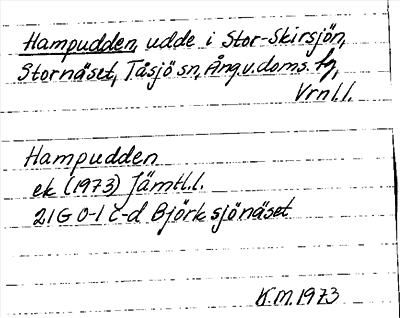 Hampudden, udde i Stor-Skirsjön,
Stornäset, Tåsjö sn, Ång.v.doms. tg,
Vrnl.l.
Hampudden
ek (1973) Jämtl.l.
21G 0-1 c-d Björksjönäset
K.M.1973